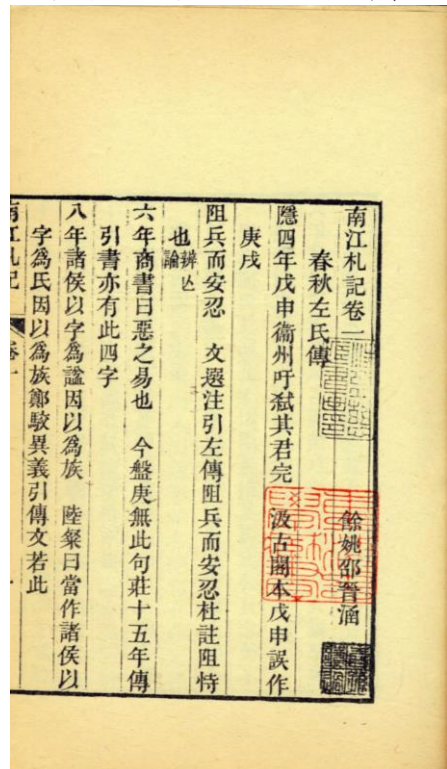 南江札記卷一
春秋左氏傳 餘姚邵晉涵
隱四年戊申衞州吁弑其君完 汲古閣本戊申誤作
庚戌
阻兵而安忍 文選注引左傳阻兵而安忍杜註阻恃
也辨亾論
六年商書曰惡之易也 今盤庚無此句莊十五年傳
引書亦有此四字
八年諸侯以字爲諡因以爲族 陸粲曰當作諸侯以
字爲氏因以爲族鄭駁異義引傳文若此
南江札記 卷一